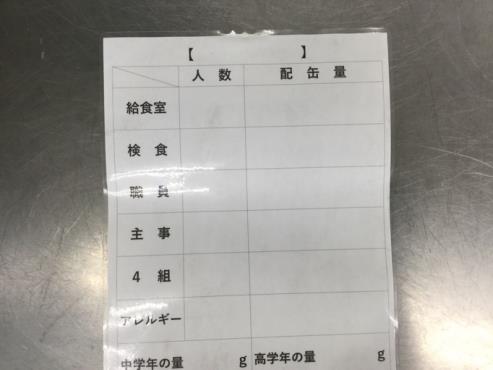 【 】
人数 配缶量
給食室
検食
職員
主事
4組
アレルギー
中学年の量 g 高学年の量 g